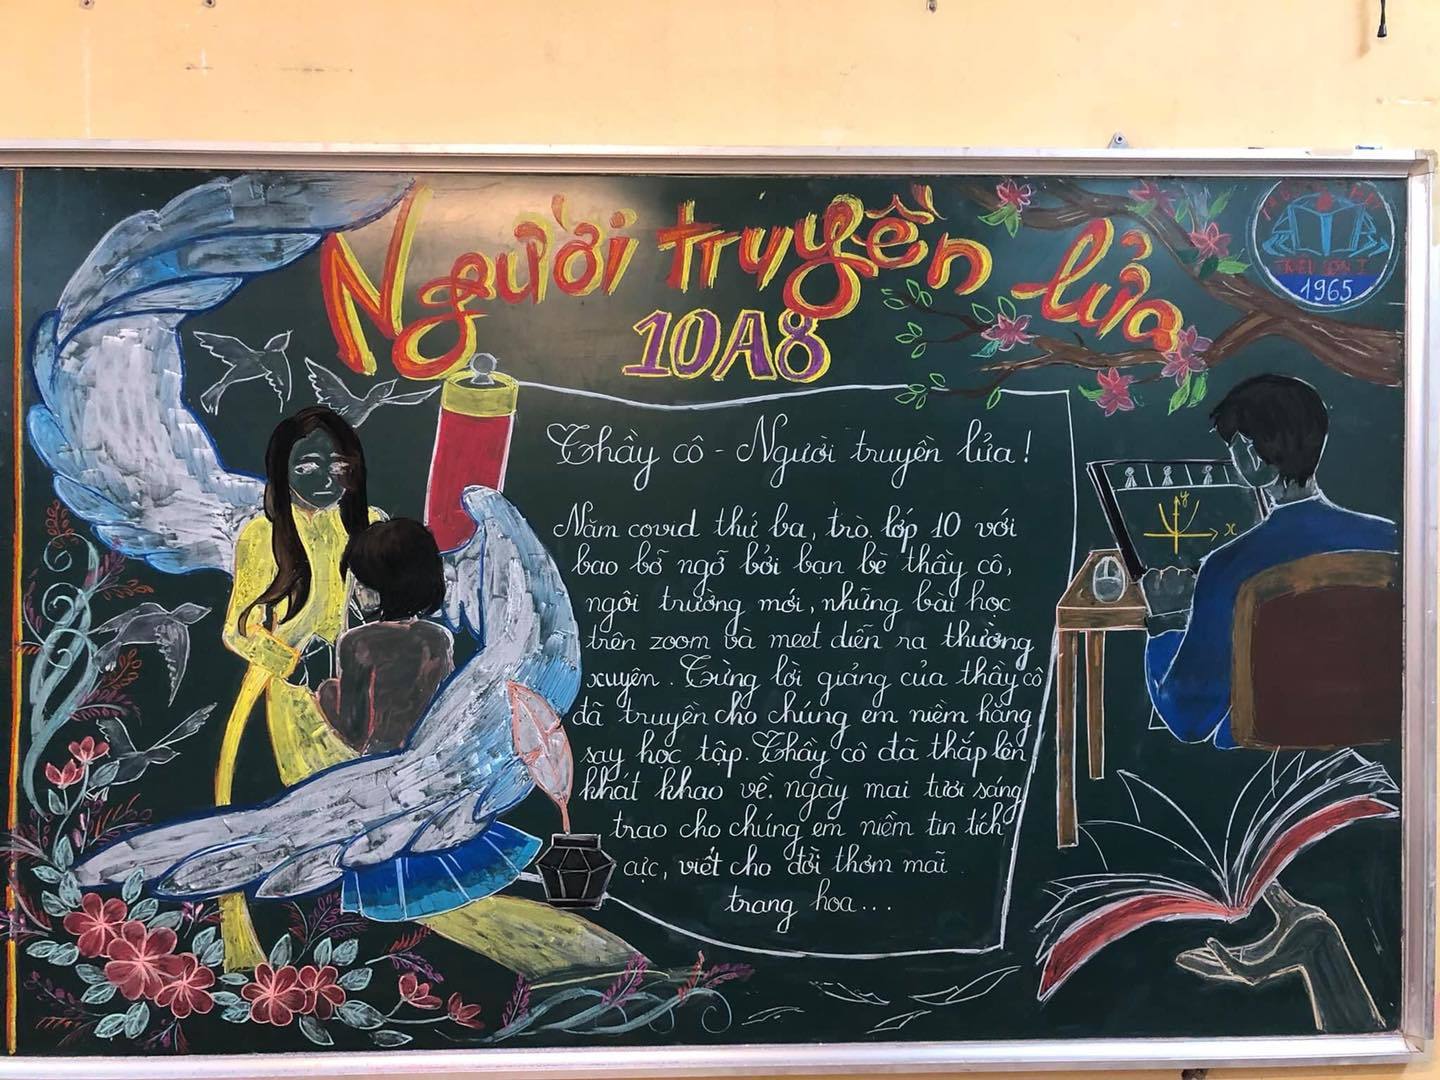 Người truyền lửa
10A8
TRIỆU SƠN I
1965
Thầy cô - Người truyền lửa!
Năm covid thứ ba, trò lớp 10 với
bao bỡ ngỡ bởi bạn bè thầy cô,
ngôi trường mới, những bài học
trên zoom và meet diễn ra thường
xuyên. Từng lời giảng của thầy cô
đã truyền cho chúng em niềm hăng
say học tập. Thầy cô đã thắp lên
khát khao về ngày mai tươi sáng
trao cho chúng em niềm tin tích
cực, viết cho đời thơm mãi
trang hoa...
y
x